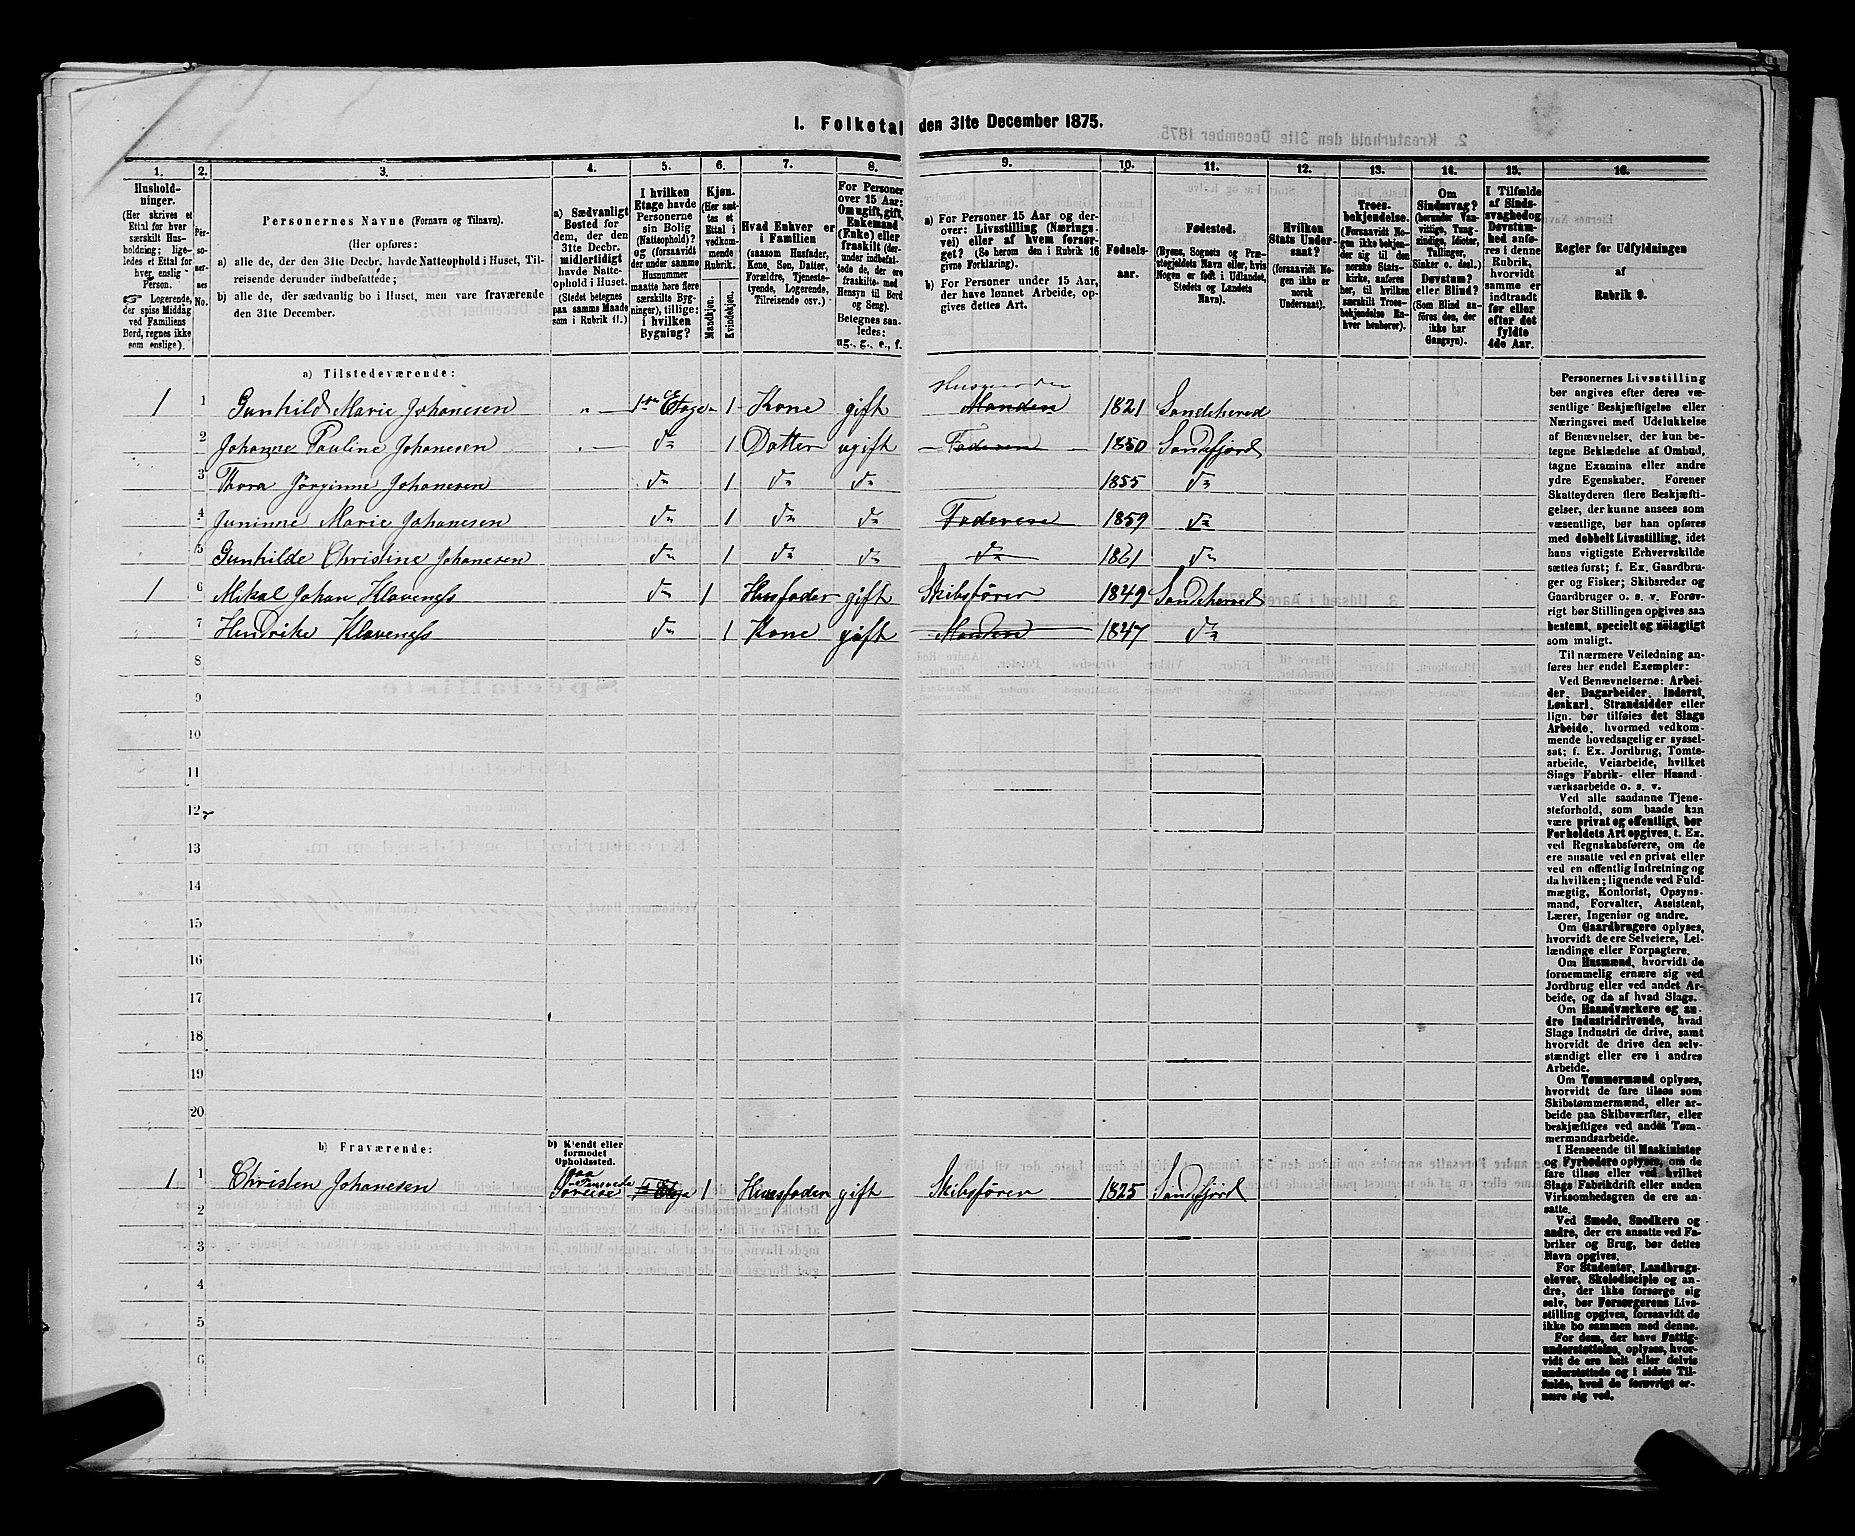 I. Folketal den 31te December 1875.
1. 2. 3. 4. 5. 6. 7. 8. 9. 10. 11. 12. 13. 14. 15. 16.
Husholdninger.
(Her skrives et Ettal for hver særskilt Husholdning; ligeledes et Ettal for hver enslig Person.
☞ Logerende, der spise Middag ved Familiens Bord, regnes ikke som enslige).
Personernes No.
Personernes Navne (Fornavn og Tilnavn).
(Her opføres:
a) alle de, der den 31te Decbr. havde Natteophold i Huset, Tilreisende derunder indbefattede;
b) alle de, der sædvanlig bo i Huset, men vare fraværende den 31te December.
a) Sædvanligt Bosted for dem, der den 31te Decbr. midlertidigt havde Natteophold i Huset. (Stedet betegnes paa samme Maade som i Rubrik 11.)
I hvilken Etage havde Personerne sin Bolig (Natteophold)? og (forsaavidt der under samme Husnummer maatte høre flere særskilte Bygninger), tillige: i hvilken Bygning?
Kjøn. (Her sættes et Ettal i vedkommende Rubrik.
Mandkjøn. Kvindekjøn.
Hvad Enhver er i Familien
(saasom Husfader, Kone, Søn, Datter, Forældre, Tjenestetyende, Logerende, Tilreisende osv.)
For Personer over 15 Aar: Om ugift, gift, Enkemand (Enke) eller fraskilt (derunder indbefattede de, der ere fraskilte med Hensyn til Bord og Seng).
Betegnes saaledes: ug., g., e., f.
a) For Personer 15 Aar og derover: Livsstilling (Næringsvei) eller af hvem forsørget? (Se herom den i Rubrik 16 givne Forklaring).
b) For Personer under 15 Aar, der have lønnet Arbeide, opgives dettes Art.
Fødselsaar.
Fødested.
(Byens, Sognets og Præstegjeldets Navn eller, hvis Nogen er født i Udlandet, Stedets og Landets Navn).
Hvilken Stats Undersaat?
(forsaavidt Nogen ikke er norsk Undersaat).
Troesbekjendelse.
(Forsaavidt Nogen ikke bekjender sig til den norske Statskirke, anføres her, til hvilken særskilt Troesbekjendelse Enhver henhører).
Om Sindssvag? (herunder Vanvittige, Tungsindige, Idioter, Tullinger, Sinker o. desl.) Døvstum? eller Blind? (Som Blind anføres den, der ikke har Gangsyn).
I Tilfælde af Sindssvaghed og Døvstumhed anføres i denne Rubrik, hvorvidt samme er indtraadt før eller efter det fyldte 4de Aar.
Regler for Udfyldningen
af
Rubrik 9.
a) Tilstedeværende:
1 1 Gunhild Marie Johanesen „ 1ste Etage 1 Kone gift Manden 1821 Sandeherred
2 Johanne Pauline Johanesen „ do 1 Datter ugift Faderen 1850 Sandefjord
3 Thora Jørginne Johanesen do 1 do do 1855 do
4 Juninne Marie Johanesen do 1 do do Faderen 1859 do
5 Gunhilde Christine Johanesen do 1 do do do 1861 do
1 6 Mikal Johan Klaveness do 1 Husfader gift Skibsfører 1849 Sandeherred
7 Hendrike Klaveness do 1 Kone gift Manden 1847 do
8
9
10
11
12
13
14
15
16
17
18
19
20
b) Fraværende:
b) Kjendt eller formodet Opholdssted.
1 1 Christen Johanesen paa Søreise Etage 1 Huusfader gift Skibsfører 1825 Sandefjord
2
3
4
5
6
Personernes Livsstilling
bør angives efter deres væ-
sentlige Beskjæftigelse eller
Næringsvei med Udelukkelse
af Benævnelser, der kun be-
tegne Beklædelse af Ombud,
tagne Examina eller andre
ydre Egenskaber. Forener
Skatteyderen flere Beskjæfti-
gelser, der kunne ansees som
væsentlige, bør han opføres
med dobbelt Livsstilling, idet
hans vigtigste Erhvervskilde
sættes først; f. Ex. Gaardbru-
ger og Fisker; Skibsreder og
Gaardbruger o. s. v. Forøv-
rigt bør Stillingen opgives saa
bestemt, specielt og nøiagtigt
som muligt.
Til nærmere Veiledning an-
føres her endel Exempler:
Ved Benævnelserne: Arbei-
der, Dagarbeider, Inderst,
Løskarl, Strandsidder eller
lign. bør tilføies det Slags
Arbeide, hvormed vedkom-
mende hovedsagelig er syssel-
sat; f. Ex. Jordbrug, Tomte-
arbeide, Veiarbeide, hvilket
Slags Fabrik- eller Haand-
værksarbeide o. s. v.
Ved alle saadanne Tjene-
steforhold, som baade kan
være privat og offentligt, bør
Forholdets Art opgives, t. Ex.
ved Regnskabsførere, om de
ere ansatte ved en privat eller
ved en offentlig Indretning og
da hvilken; lignende ved Fuld-
mægtig, Kontorist, Opsyns-
mand, Forvalter, Assistent,
Lærer, Ingeniør og andre.
Om Gaardbrugere oplyses,
hvorvidt de ere Selveiere, Lei-
lændinge eller Forpagtere.
Om Husmænd, hvorvidt de
fornemmelig ernære sig ved
Jordbrug eller ved andet Ar-
beide, og da af hvad Slags.
Om Haandværkere og an-
dre Industridrivende, hvad
Slags Industri de drive, samt
hvorvidt de drive den selv-
stændigt eller ere i andres
Arbeide.
Om Tømmermænd oplyses,
hvorvidt de fare tilsøs som
Skibstømmermænd, eller ar-
beide paa Skibsværfter, eller
beskjæftiges ved andet Tøm-
mermandsarbeide.
I Henseende til Maskinister
og Fyrbødere oplyses, om de
fare tilsøs eller ved hvilket
Slags Fabrikdrift eller anden
Virksomhedsgren de ere an-
satte.
Ved Smede, Snedkere og
andre, der ere ansatte ved Fa-
briker og Brug, bør dettes
Navn opgives.
For Studenter, Landbrugs-
elever, Skoledisciple og an-
dre, der ikke forsørge sig
selv, bør Forsørgerens Livs-
stilling opgives, forsaavidt de
ikke bo sammen med denne.
For dem, der have Fattig-
understøttelse, oplyses, hvor-
vidt de ere helt eller delvis
understøttede og i sidste Til-
fælde, hvad de forøvrigt er-
nære sig ved.